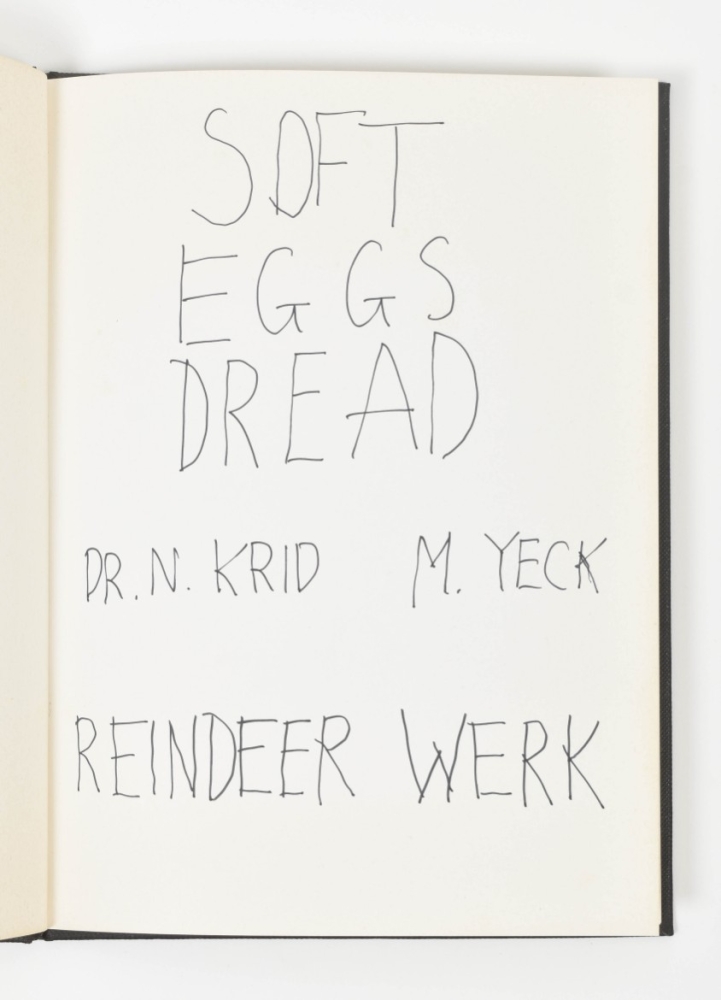 SOFT
EGGS
DREAD
DR. N. KRID M. YECK
REINDEER WERK